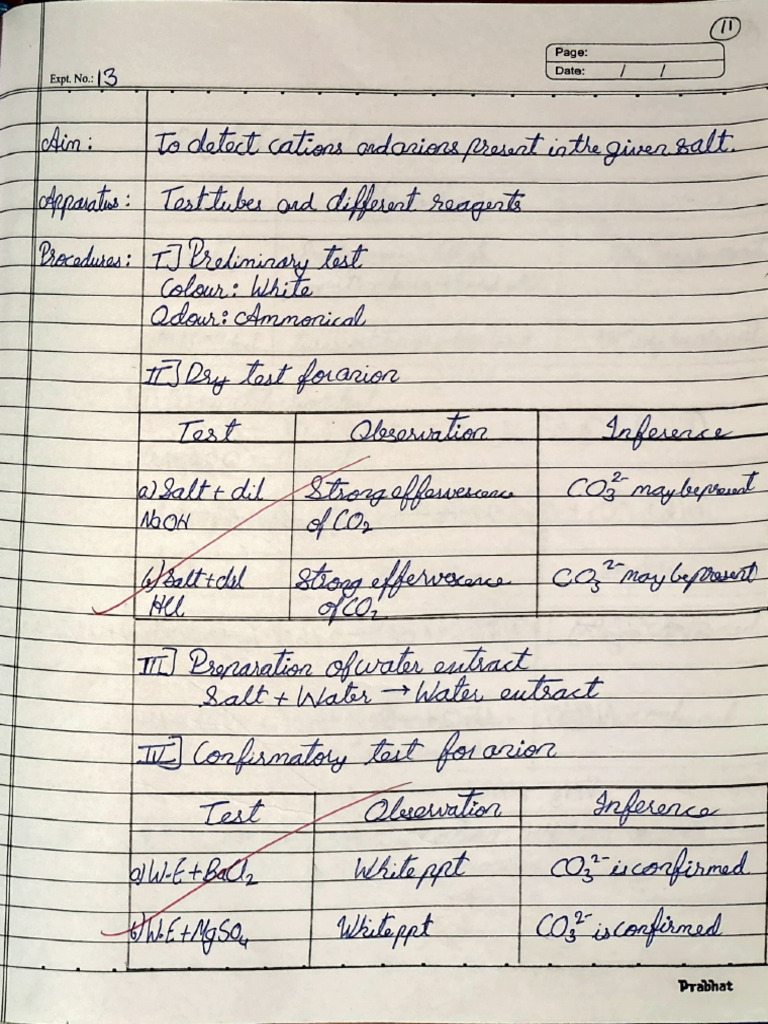 11
Page:
Expt. No.: 13
Date: / /
Aim: To detect cations and anions present in the given salt.
Apparatus: Test tubes and different reagents
Procedures: I] Preliminary test
Colour: White
Odour: Ammonical
II] Dry test for anion
Test Observation Inference
a) Salt + dil Strong effervescence CO₃²⁻ may be present
NaOH of CO₂
b) Salt + dil Strong effervescence CO₃²⁻ may be present
HCl of CO₂
III] Preparation of water extract
Salt + Water → Water extract
IV] Confirmatory test for anion
Test Observation Inference
a) W·E + BaCl₂ White ppt CO₃²⁻ is confirmed
b) W·E + MgSO₄ White ppt CO₃²⁻ is confirmed
Prabhat